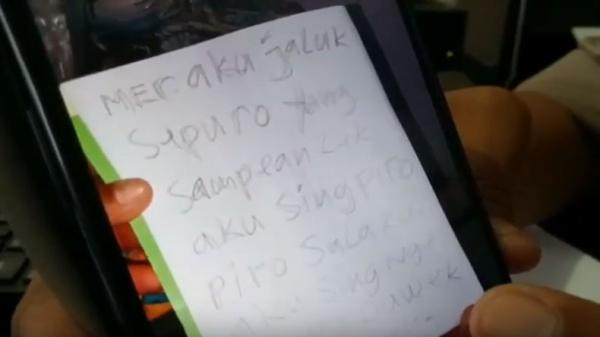 MER. aku jaluk
Sepuro yang
Sampean Lek
aku Sing PiRo
piro Salaku
aku Sing Nge
uwek